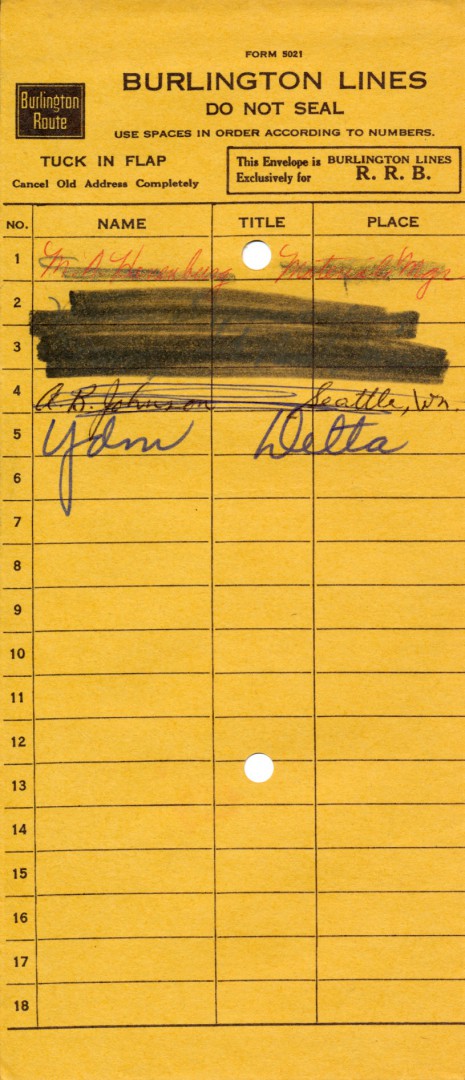 FORM 5021
Burlington Route
BURLINGTON LINES
DO NOT SEAL
USE SPACES IN ORDER ACCORDING TO NUMBERS.
TUCK IN FLAP
Cancel Old Address Completely
This Envelope is BURLINGTON LINES
Exclusively for R. R. B.
NO. NAME TITLE PLACE
1 M A Mgr
2
3
4 A. R. Johnson Seattle, Wn.
5 Ydm Delta
6
7
8
9
10
11
12
13
14
15
16
17
18